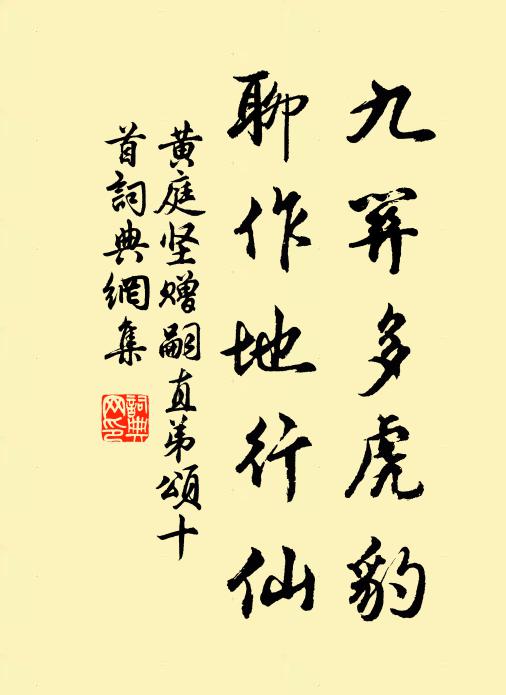 九關多虎豹
聊作地行仙
黄庭坚贈嗣直弟頌十
首詞典網集
詞典
网印